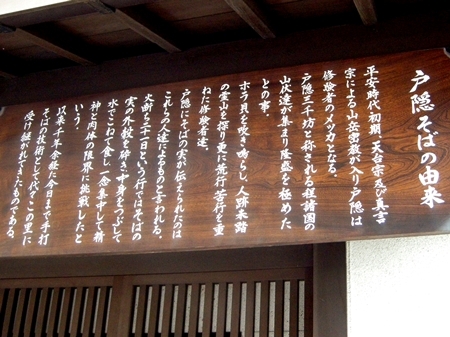 戸隠そばの由来
平安時代初期、天台宗及び真言
宗による山岳密教が入り戸隠は
修験者のメッカとなる。
戸隠三千坊と称される程諸国の
山伏達が集まり隆盛を極めた
との事。
ホラ貝を吹き鳴らし、人跡未踏
の霊山を探り更に荒行、苦行を重
ねた修験者達。
戸隠にそばの実が伝えられたのは
これらの人達によるものと言われる。
火断ち二十一日という行ではそばの
実の外殻を砕き、中身をつぶして
水でこねて食し一念を串して精
神と肉体の限界に挑戦したと
いう。
以来千年余経た今日まで手打
そばの技術として代々この里に
受け継がれてきたものである。